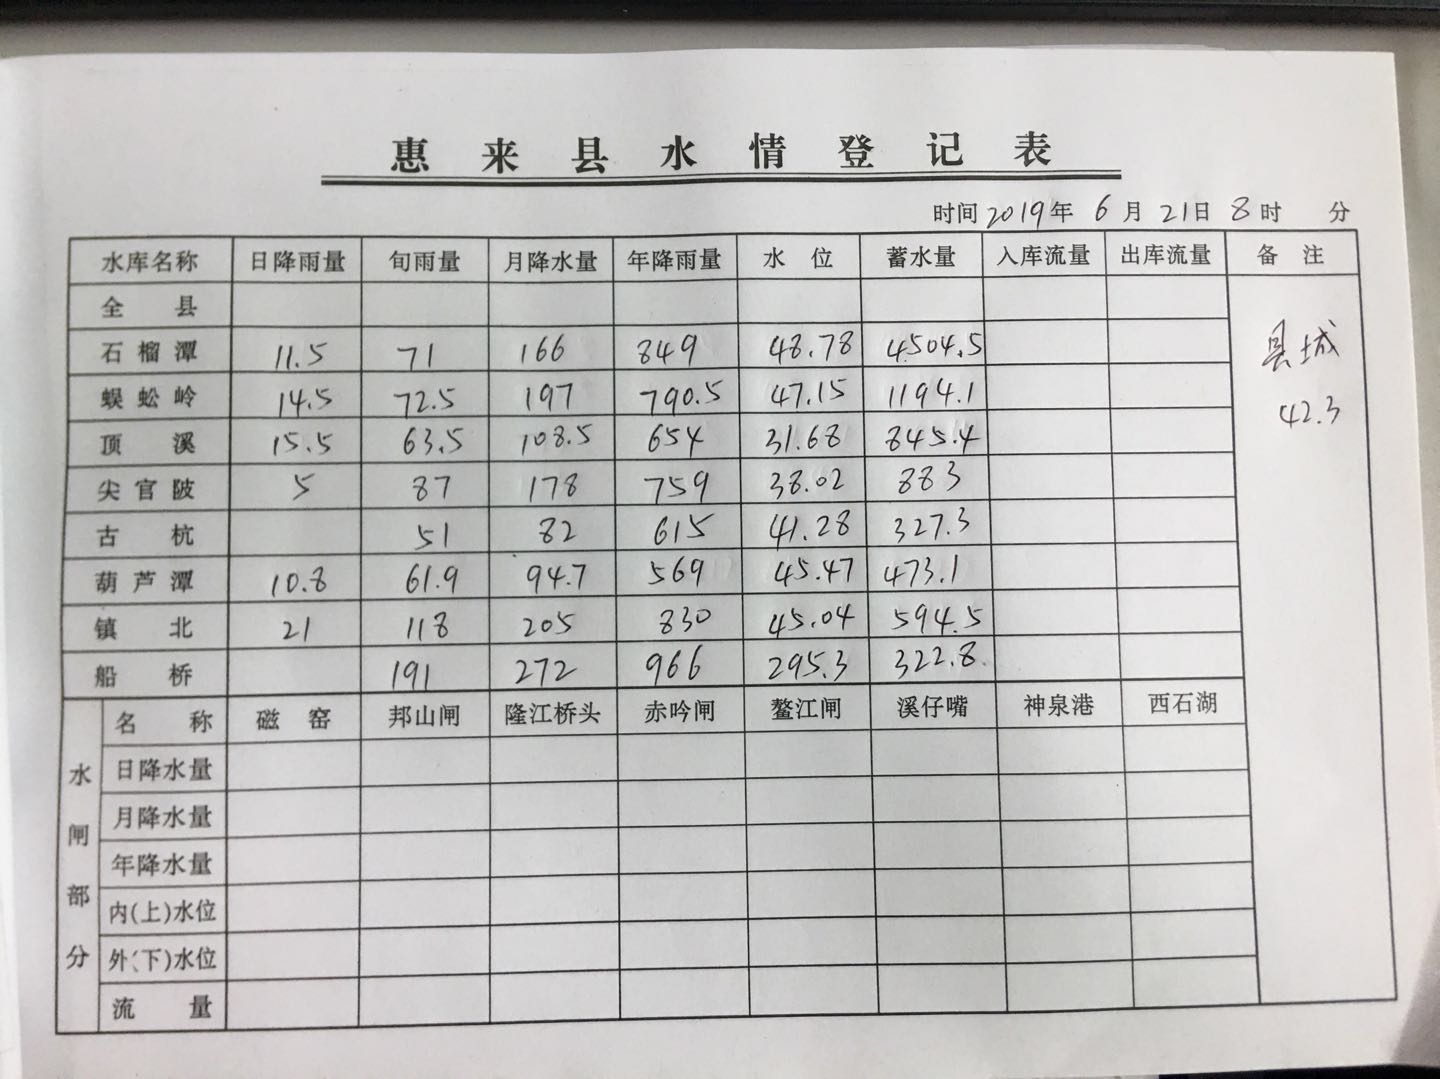 惠来县水情登记表
时间2019年6月21日8时 分
水库名称 日降雨量 旬雨量 月降水量 年降雨量 水位 蓄水量 入库流量 出库流量 备注
全县
石榴潭 11.5 71 166 849 48.78 4504.5 县城
蜈蚣岭 14.5 72.5 197 790.5 47.15 1194.1 42.3
顶溪 15.5 63.5 108.5 654 31.68 845.4
尖官陂 5 87 178 759 38.02 883
古杭 51 82 615 41.28 327.3
葫芦潭 10.8 61.9 94.7 569 45.47 473.1
镇北 21 118 205 830 45.04 594.5
船桥 191 272 966 295.3 322.8
水闸部分 名称 磁窑 邦山闸 隆江桥头 赤吟闸 鳌江闸 溪仔嘴 神泉港 西石湖
日降水量
月降水量
年降水量
内(上)水位
外(下)水位
流量